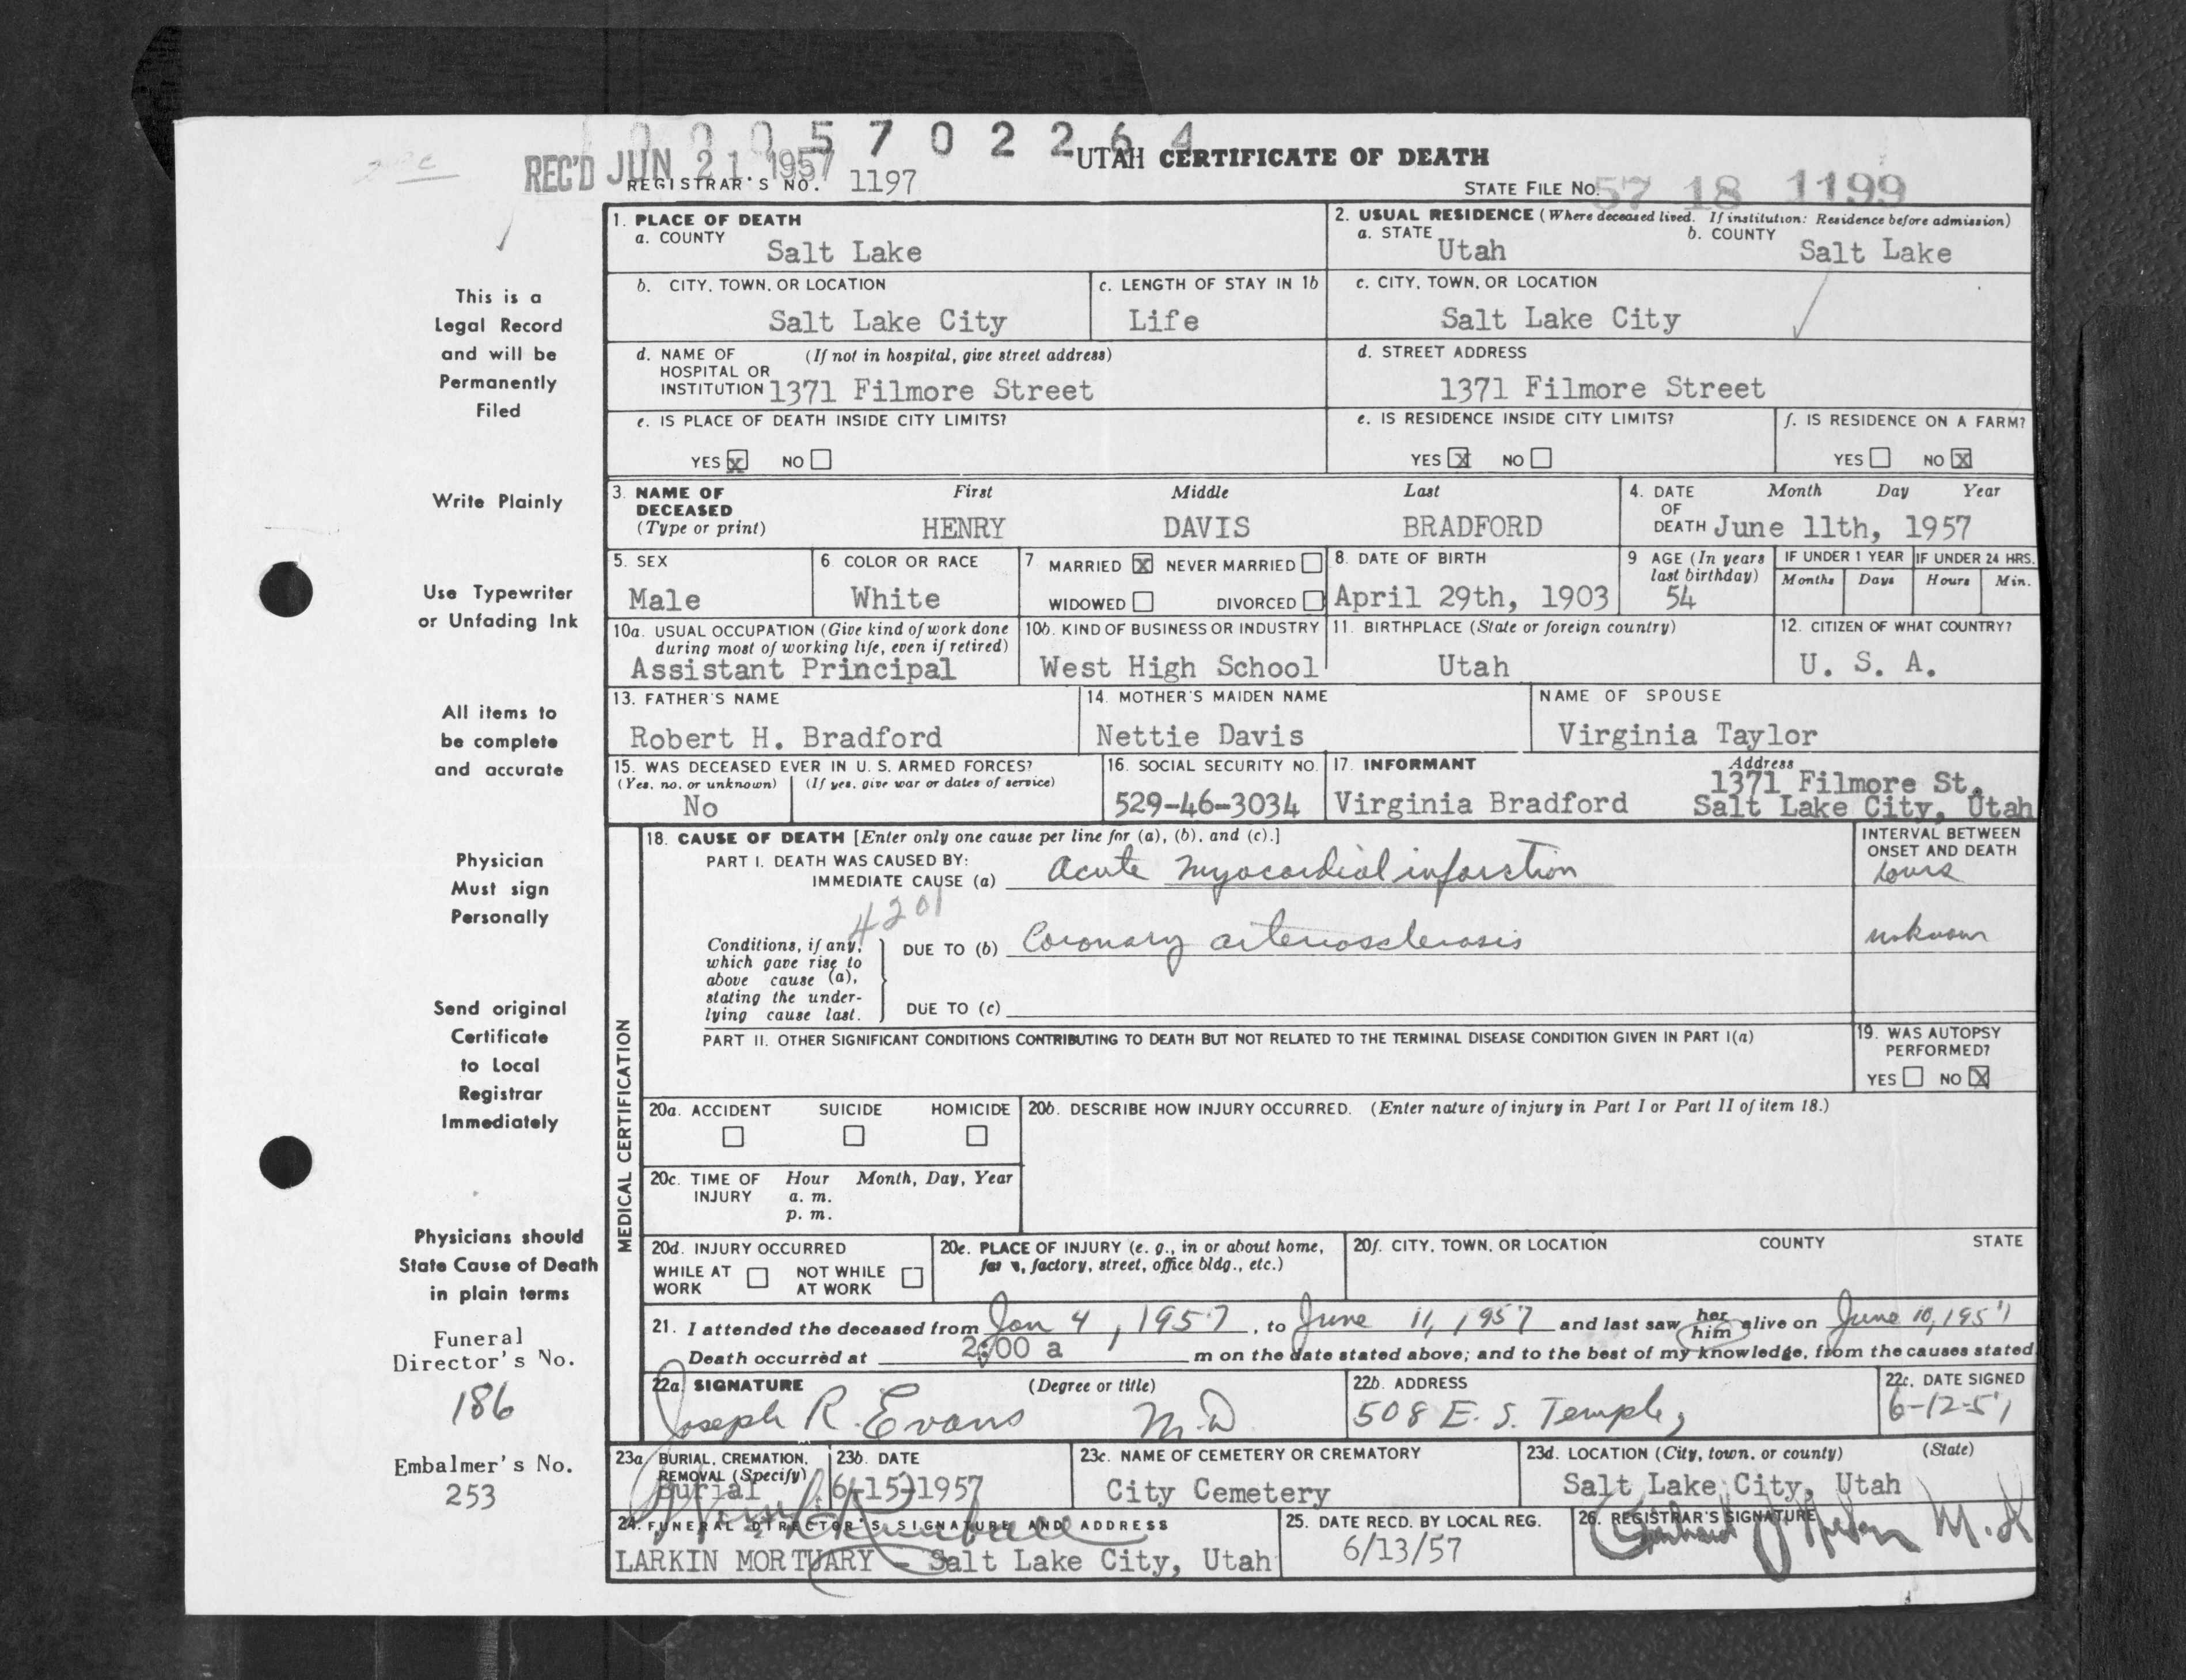 0 0 0 5 7 0 2 2 6 4
UTAH CERTIFICATE OF DEATH
REC'D JUN 21 1957
REGISTRAR'S NO. 1197
STATE FILE NO. 57 18 1199
1. PLACE OF DEATH
a. COUNTY Salt Lake
2. USUAL RESIDENCE (Where deceased lived. If institution: Residence before admission)
a. STATE Utah b. COUNTY Salt Lake
b. CITY, TOWN, OR LOCATION Salt Lake City
c. LENGTH OF STAY IN 1b Life
c. CITY, TOWN, OR LOCATION Salt Lake City
d. NAME OF HOSPITAL OR INSTITUTION (If not in hospital, give street address) 1371 Filmore Street
d. STREET ADDRESS 1371 Filmore Street
e. IS PLACE OF DEATH INSIDE CITY LIMITS?
YES X NO
e. IS RESIDENCE INSIDE CITY LIMITS?
YES X NO
f. IS RESIDENCE ON A FARM?
YES NO X
3. NAME OF DECEASED (Type or print)
First Middle Last
HENRY DAVIS BRADFORD
4. DATE OF DEATH Month Day Year
June 11th, 1957
5. SEX Male
6 COLOR OR RACE White
7 MARRIED X NEVER MARRIED
WIDOWED DIVORCED
8. DATE OF BIRTH April 29th, 1903
9 AGE (In years last birthday) 54
IF UNDER 1 YEAR Months Days
IF UNDER 24 HRS. Hours Min.
10a. USUAL OCCUPATION (Give kind of work done during most of working life, even if retired)
Assistant Principal
10b. KIND OF BUSINESS OR INDUSTRY
West High School
11. BIRTHPLACE (State or foreign country)
Utah
12. CITIZEN OF WHAT COUNTRY?
U. S. A.
13. FATHER'S NAME
Robert H. Bradford
14. MOTHER'S MAIDEN NAME
Nettie Davis
NAME OF SPOUSE
Virginia Taylor
15. WAS DECEASED EVER IN U. S. ARMED FORCES?
(Yes, no, or unknown) (If yes, give war or dates of service)
No
16. SOCIAL SECURITY NO.
529-46-3034
17. INFORMANT Address
Virginia Bradford 1371 Filmore St.
Salt Lake City, Utah
MEDICAL CERTIFICATION
18. CAUSE OF DEATH [Enter only one cause per line for (a), (b), and (c).]
PART I. DEATH WAS CAUSED BY:
IMMEDIATE CAUSE (a) Acute myocardial infarction
INTERVAL BETWEEN ONSET AND DEATH
hours
4201
Conditions, if any, which gave rise to above cause (a), stating the underlying cause last.
DUE TO (b) Coronary arteriosclerosis
unknown
DUE TO (c)
PART II. OTHER SIGNIFICANT CONDITIONS CONTRIBUTING TO DEATH BUT NOT RELATED TO THE TERMINAL DISEASE CONDITION GIVEN IN PART I(a)
19. WAS AUTOPSY PERFORMED?
YES NO X
20a. ACCIDENT SUICIDE HOMICIDE
20b. DESCRIBE HOW INJURY OCCURRED. (Enter nature of injury in Part I or Part II of item 18.)
20c. TIME OF INJURY Hour Month, Day, Year
a. m.
p. m.
20d. INJURY OCCURRED
WHILE AT WORK NOT WHILE AT WORK
20e. PLACE OF INJURY (e. g., in or about home, farm, factory, street, office bldg., etc.)
20f. CITY, TOWN, OR LOCATION COUNTY STATE
21. I attended the deceased from Jan 4, 1957, to June 11, 1957 and last saw her him alive on June 10, 1957
Death occurred at 2:00 a m on the date stated above; and to the best of my knowledge, from the causes stated
22a. SIGNATURE (Degree or title)
Joseph R. Evans M.D.
22b. ADDRESS
508 E. S. Temple
22c. DATE SIGNED
6-12-57
23a. BURIAL, CREMATION, REMOVAL (Specify)
Burial
23b. DATE
6-15-1957
23c. NAME OF CEMETERY OR CREMATORY
City Cemetery
23d. LOCATION (City, town, or county) (State)
Salt Lake City, Utah
24. FUNERAL DIRECTOR'S SIGNATURE AND ADDRESS
LARKIN MORTUARY - Salt Lake City, Utah
25. DATE RECD. BY LOCAL REG.
6/13/57
26. REGISTRAR'S SIGNATURE
This is a
Legal Record
and will be
Permanently
Filed
Write Plainly
Use Typewriter
or Unfading Ink
All items to
be complete
and accurate
Physician
Must sign
Personally
Send original
Certificate
to Local
Registrar
Immediately
Physicians should
State Cause of Death
in plain terms
Funeral
Director's No.
186
Embalmer's No.
253